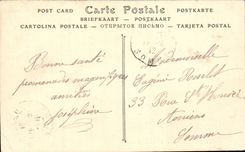 POST CARD Carte Postale POSTKARTE
BRIEFKAART POSTKAART
CARTOLINA POSTALE ОТКРЫТОЕ ПИСЬМО TARJETA POSTAL
Bonne santé
promenades magnifiques
amitiés
Joséphine
Mademoiselle
Eugénie
33 Rue St Honoré
Amiens
Somme